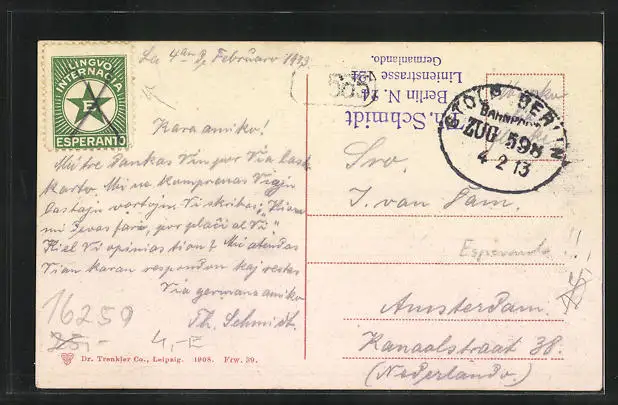 LINGVO
INTERNACIA
E
ESPERANTO
La 4an de Februaro 1913
Kara amiko!
Mi tre dankas Vin por Via lasta
karto. Mi ne komprenas Viajn
lastajn vortojn. Vi skribas: „Kion
mi devas fari, por plaĉi al Vi“
Kiel Vi opinias tion? Mi atendas
Vian karan respondon kaj restas
Via germana amiko
Th. Schmidt.
16259
25,-
4,-E
Dr. Trenkler Co., Leipzig. 1908. Frw. 39.
Th. Schmidt
Berlin N. 24
Linienstrasse 121
Germanlando.
STOLP BERLIN
BAHNPOST
ZUG 598
4 2 13
Sro.
J. van Dam.
Esperanto!!!
Amsterdam.
Kanaalstraat 38.
(Nederlando.)